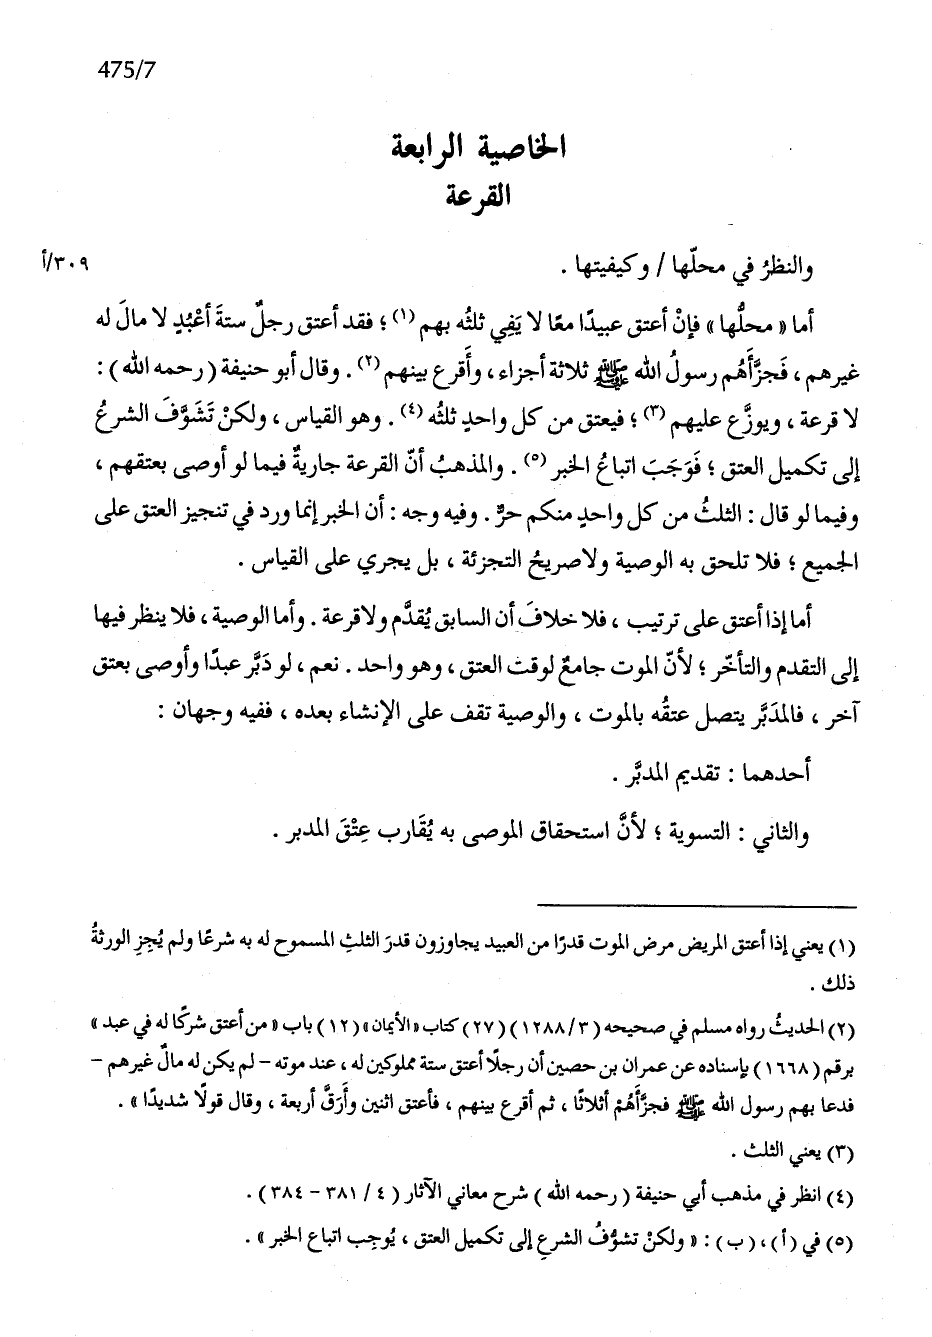 475/7
الخاصية الرابعة
القرعة
والنظرُ في محلّها / وكيفيتها .
٣٠٩/أ
أما « محلُّها » فإنْ أعتق عبيدًا معًا لا يَفِي ثلثُه بهم (١) ؛ فقد أعتق رجلٌ ستةَ أعْبُدٍ لا مالَ له
غيرهم ، فَجزَّأَهُم رسولُ الله ﷺ ثلاثة أجزاء ، وأَقرع بينهم (٢) . وقال أبو حنيفة ( رحمه الله ) :
لا قرعة ، ويوزَّع عليهم (٣) ؛ فيعتق من كل واحدٍ ثلثُه (٤) . وهو القياس ، ولكنْ تَشَوَّفَ الشرعُ
إلى تكميل العتق ؛ فَوَجَبَ اتباعُ الخبر (٥) . والمذهبُ أنّ القرعة جاريةٌ فيما لو أوصى بعتقهم ،
وفيما لو قال : الثلثُ من كل واحدٍ منكم حرٌّ . وفيه وجه : أن الخبر إنما ورد في تنجيز العتق على
الجميع ؛ فلا تلحق به الوصية ولاصريحُ التجزئة ، بل يجري على القياس .
أما إذا أعتق على ترتيب ، فلا خلافَ أن السابق يُقدَّم ولاقرعة . وأما الوصية ، فلا ينظر فيها
إلى التقدم والتأخّر ؛ لأنّ الموت جامعٌ لوقت العتق ، وهو واحد . نعم ، لو دَبَّر عبدًا وأوصى بعتق
آخر ، فالمدَبَّر يتصل عتقُه بالموت ، والوصية تقف على الإنشاء بعده ، ففيه وجهان :
أحدهما : تقديم المدبَّر .
والثاني : التسوية ؛ لأنَّ استحقاق الموصى به يُقَارب عِتْقَ المدبر .
(١) يعني إذا أعتق المريض مرض الموت قدرًا من العبيد يجاوزون قدرَ الثلثِ المسموح له به شرعًا ولم يُجِزِ الورثةُ
ذلك .
(٢) الحديثُ رواه مسلم في صحيحه (٣/ ١٢٨٨) (٢٧) كتاب «الأيمان» (١٢) باب « من أعتق شركًا له في عبد »
برقم (١٦٦٨) بإسناده عن عمران بن حصين أن رجلًا أعتق ستة مملوكين له ، عند موته – لم يكن له مالٌ غيرهم –
فدعا بهم رسول الله ﷺ فجزَّأَهُمْ أثلاثًا ، ثم أقرع بينهم ، فأعتق اثنين وأَرقَّ أربعة ، وقال قولًا شديدًا » .
(٣) يعني الثلث .
(٤) انظر في مذهب أبي حنيفة ( رحمه الله ) شرح معاني الآثار ( ٤ / ٣٨١ – ٣٨٤ ) .
(٥) في (أ) ، (ب) : « ولكنْ تشوُّفُ الشرعِ إلى تكميل العتق ، يُوجِب اتباع الخبر » .